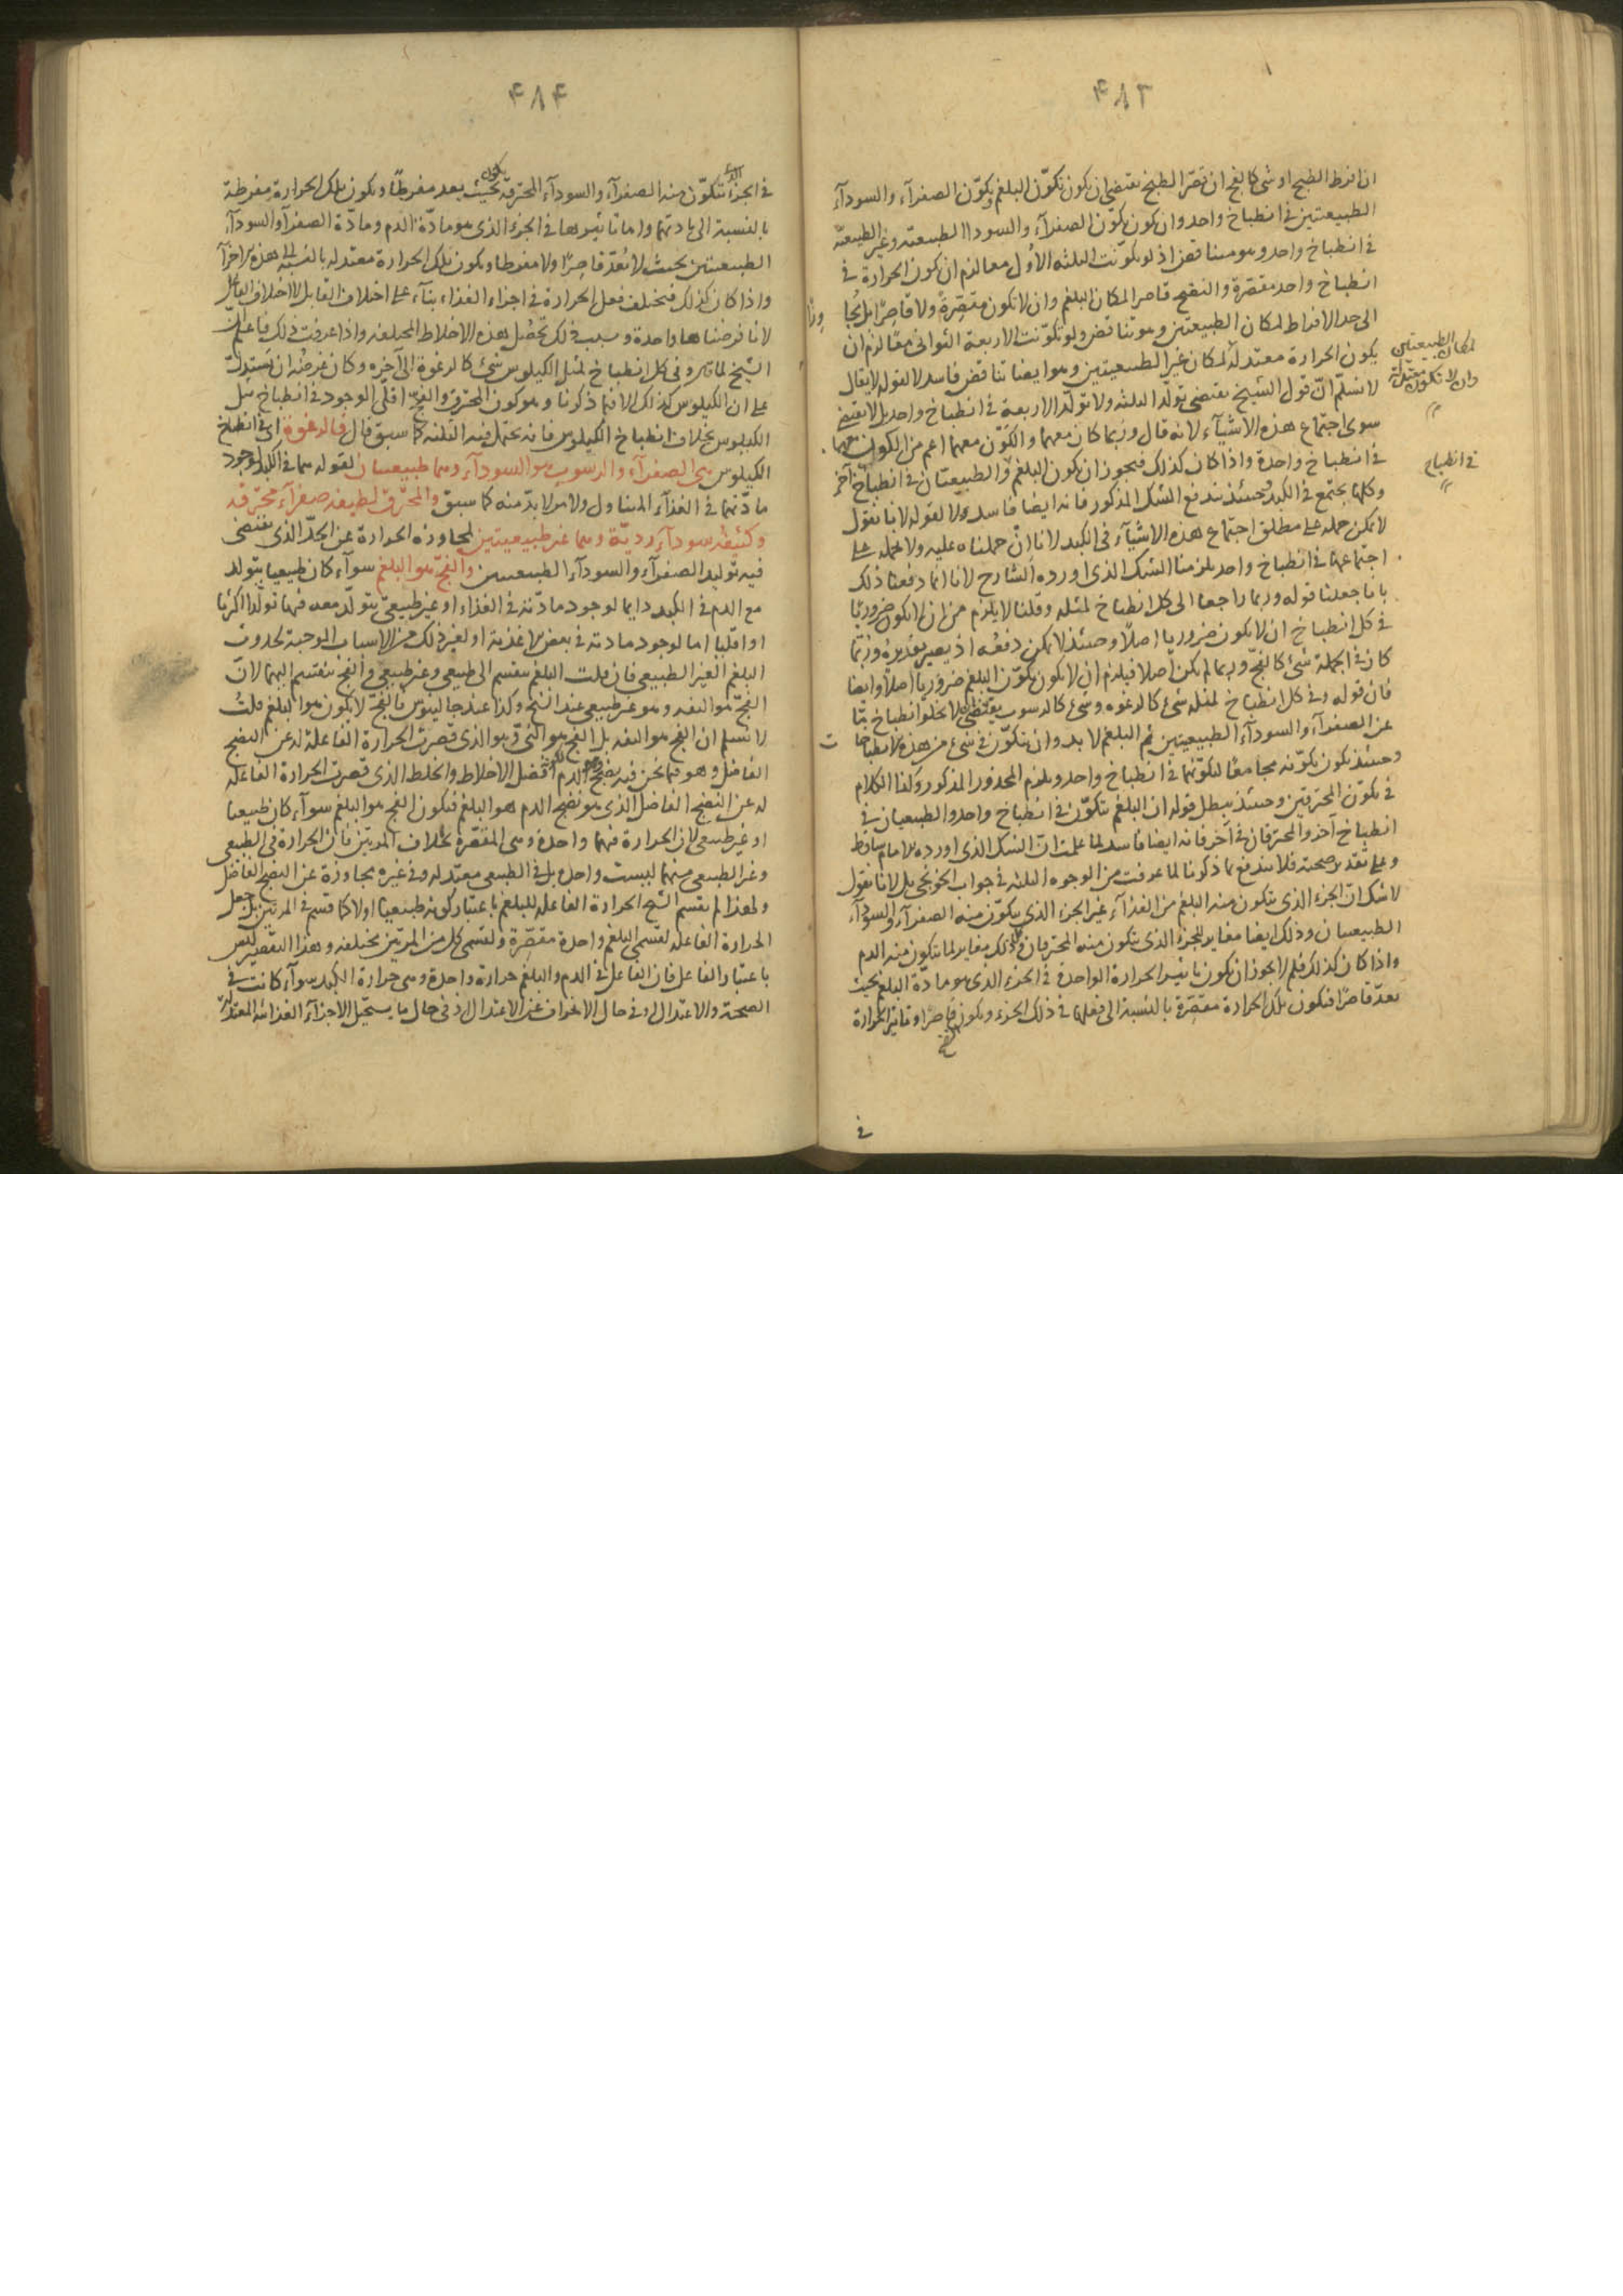 ۴۸۳
ان افرط الطبخ او شئ كالفج ان قصر الطبخ يقتضى ان يكون تكوّن البلغم وتكوّن الصفرآء والسودآء
الطبيعيتين فى انطباخ واحد وان يكون تكوّن الصفرآء والسودا الطبيعية وغير الطبيعية
فى انطباخ واحد وهو مناقض اذ لو تكوّنت الثلثة الاُوَل معا لزم ان يكون الحرارة فى
انطباخ واحد مقصّرة والنضج قاصرا لمكان البلغم وان لا تكون مقصّرةً ولا قاصرًا بل
الى حد الافراط لمكان الطبيعيتين وهو تناقض ولو تكوّنت الاربعة الثوانى معًا لزم ان
لمكان الطبيعيتين وان لا تكون معتدلة
يكون الحرارة معتدلة لمكان غير الطبيعيتين وهو ايضا تناقض فاسد لا لقوله لا يقال
لا نسلّم انّ قول الشيخ يقتضى تولّد الثلثة ولا تولّد الاربعة فى انطباخ واحد بل لا يقتضى
سوى اجتماع هذه الاشيآء لانه قال وربما كان معهما والكون معهما اعم من الكون معهما
فى انطباخ
فى انطباخ واحدة واذا كان كذلك فيجوز ان يكون البلغم فى انطباخ والطبيعيتان فى انطباخ آخر
وكلها يجتمع فى الكبد وحينئذ يندفع الشك المذكور فانه ايضا فاسد لا لقوله لانا نقول
لا يمكن حمله على مطلق اجتماع هذه الاشيآء فى الكبد لانا اِنْ حملناه عليه ولا نحمله على
اجتماعها فى انطباخ واحد يلزمنا الشك الذى اورده الشارح لانا انما دفعنا ذلك
بانا جعلنا قوله وربما راجعا الى كل انطباخ لمثله وقلنا لا يلزم من ان لا يكون ضروريّا
فى كل انطباخ ان لا يكون ضروريا اصلًا وحينئذ لا يمكن دفعُه اذ يصير تقديرُه وربّما
كان فى الجملة شئ كالفجّ وربما لم يكن اصلا فيلزم ان لا يكون تكوّن البلغم ضروريّا اصلًا وايضا
فان قوله وفى كل انطباخ لمثله شئ كالرغوه وشئ كالرسوب يقتضى ان لا يخلو انطباخ مّا
عن الصفرآء والسودآء الطبيعيتين ثم البلغم لا بد وان يتكوّن فى شئ من هذه الانطباخات
وحينئذ يكون تكوّنه مجامعًا لتكوّنهما فى انطباخ واحد ويلزم المحذور المذكور وكذا الكلام
فى تكوّن المحترقتين وحينئذ يبطل قوله ان البلغم يتكوّن فى انطباخ واحد والطبيعيان فى
انطباخ آخر والمحترقان فى آخر فانه ايضا فاسد لما علمت انّ الشك الذى اورده الامام ساقط
وعلى تقدير صحته فلا يندفع بما ذكرنا لما عرفت من الوجوه الثلثة فى جواب الخونجى بل لانا نقول
لا شك انّ الجزء الذى يتكون منه البلغم من الغذآء غير الجزء الذى يتكوّن منه الصفرآء والسودآء
الطبيعيان وذلك ايضا مغاير للجزء الذى يتكون منه المحترقان وكذلك مغاير لما يتكون منه الدم
واذا كان كذلك فلم لا يجوز ان يكون تاثير الحرارة الواحدة فى الجزء الذى هو مادّة البلغم بحيث
يعدّ قاصرًا فتكون تلك الحرارة مقصّرة بالنسبة الى فعلها فى ذلك الجزء ويكون قاصرا وتاثير الحرارة
فى
۴۸۴
فى الجزء الذى يتكوّن منه الصفرآء والسودآء المحترقة بحيث يعد مفرطًا ويكون تلك الحرارة مفرطة
بالنسبة الى مادتهما واما تاثيرها فى الجزء الذى هو مادّة الدم ومادّة الصفرآء والسودآء
الطبيعيتين بحيث لا يُعدّ قاصرًا ولا مفرطا ويكون تلك الحرارة معتدله بالنسبة الى هذه الاجزآء
واذا كان كذلك فيختلف فعل الحرارة فى اجزاء الغذاء بنآء على اختلاف القابل لا اختلاف الفاعل
لانا فرضناها واحدة وسبب ذلك تحصُل هذه الاخلاط المختلفه واذا عرفت ذلك فاعلم انّ
الشيخ لما قال وفى كل انطباخ لمثل الكيلوس شئ كالرغوة الى آخره وكان غرضُه ان يستدلّ
على ان الكيلوس كذلك الا فيما ذكرنا وهو كون المحترق والفجّ اقلّى الوجود فى انطباخ مثل
الكيلوس بخلاف انطباخ الكيلوس فانه يحتمل فيه الثلثه كما سبق قال فالرغوة اى فى انطباخ
الكيلوس هى الصفرآء والرسوب هو السودآء وهما طبيعيان لقوله هما فى الكبد لوجود
مادّتهما فى الغذآء المتناول ولا هو لابدّ منه كما سبق والمحترق لطيفه صفرآء محترقه
وكثيفه سودآء رديّة وهما غير طبيعيتين لمجاوزة الحرارة عن الحدّ الذى يقتضى
فيه توليد الصفرآء والسودآء الطبيعيين والفجّ هو البلغم سوآء كان طبيعيا يتولد
مع الدم فى الكبد دايما لوجود مادّته فى الغذاء او غير طبيعىّ يتولّد معه فيها تولّدا اكثريّا
او اقلّيا اما لوجود مادته فى بعض الاغذية او لغير ذلك من الاسباب الموجبة لحدوث
البلغم الغير الطبيعى فان قلت البلغم ينقسم الى طبيعى وغير طبيعى والفج ينقسم اليهما لانّ
الفجّ هو التفه وهو غير طبيعى عند الشيخ وكذا عند جالينوس فالفجّ لا يكون هو البلغم قلتُ
لا نسلم ان الفج هو التفه بل الفج هو النىّ وهو الذى قصرت الحرارة الفاعلة له عن النضج
الفاضل وهو فيما نحن فيه نضج الدم لانه افضل الاخلاط والخلط الذى قصرت الحرارة الفاعله
له عن النضج الفاضل الذى هو نضج الدم هو البلغم فيكون الفج هو البلغم سوآء كان طبيعيا
او غير طبيعى لان الحرارة فيهما واحدة وهى المقصّرة بخلاف المرتين فان الحرارة فى الطبيعى
وغير الطبيعى منهما ليست واحدة بل فى الطبيعى معتدله وفى غيره مجاوزة عن النضج الفاضل
ولهذا لم يقسم الشيخ الحرارة الفاعلة للبلغم باعتبار كونه طبيعيّا اولا كما قسّم فى المرتين بل جعل
الحرارة الفاعله لقسمى البلغم واحدة مقصّرة ولقسمى كل من المرتين مختلفه وهذا التقصير ليس
باعتبار الفاعل فان الفاعل فى الدم والبلغم حرارة واحدة وهى حرارة الكبد سوآء كانت فى
الصحة والاعتدال او فى حال الانحراف عن الاعتدال اذ فى حال ما يستحيل الاجزآء الغذائية المعتدلة